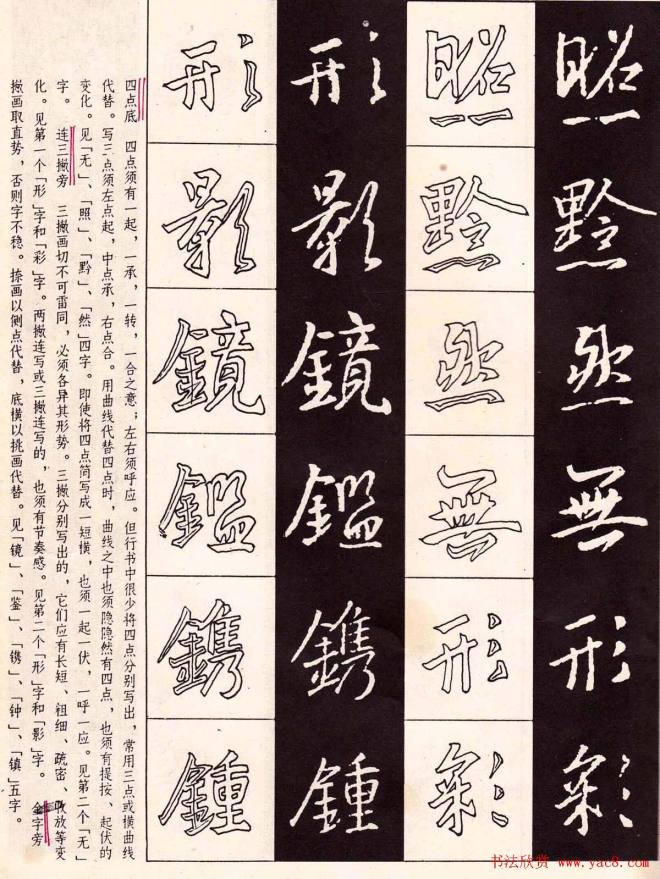 照
黔
然
無
形
彩
照
黔
然
無
形
彩
形
影
鏡
鑑
鐫
鍾
形
影
鏡
鑑
鐫
鍾
四点底　四点须有一起，一承，一转，一合之意；左右须呼应。但行书中很少将四点分别写出，常用三点或横曲线
代替。写三点须左点起，中点承，右点合。用曲线代替四点时，曲线之中也须隐隐然有四点，也须有提按、起伏的
变化。见「无」、「照」、「黔」、「然」四字。即使将四点简写成一短横，也须一起一伏，一呼一应。见第二个「无」
字。　连三撇旁　三撇画切不可雷同，必须各异其形势。三撇分别写出的，它们应有长短、粗细、疏密、收放等变
化。见第一个「形」字和「彩」字。两撇连写或三撇连写的，也须有节奏感。见第二个「形」字和「影」字。　金字旁
撇画取直势，否则字不稳。捺画以侧点代替，底横以挑画代替。见「镜」、「鉴」、「镌」、「钟」、「镇」五字。
书法欣赏 www.yac8.com